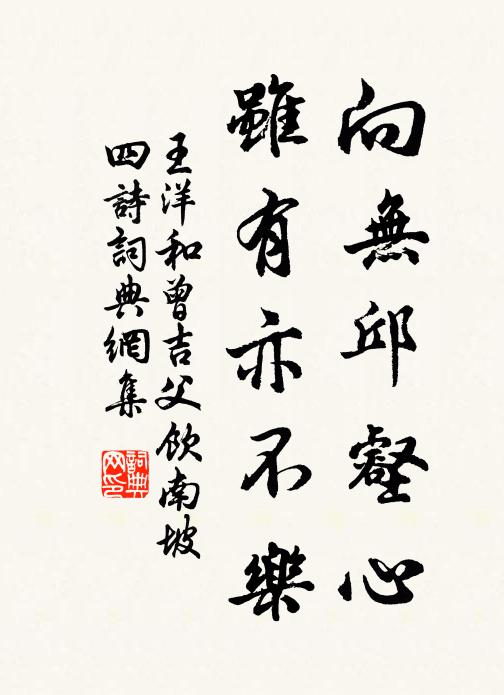 向無邱壑心
雖有亦不樂
王洋和曾吉父飲南坡
四詩詞典網集
詞典
网